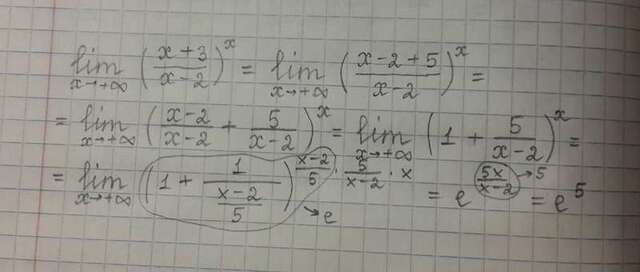 lim x→+∞ ((x+3)/(x-2))^x = lim x→+∞ ((x-2+5)/(x-2))^x =
= lim x→+∞ ((x-2)/(x-2) + 5/(x-2))^x = lim x→+∞ (1 + 5/(x-2))^x =
= lim x→+∞ (1 + 1/((x-2)/5))^((x-2)/5 · 5/(x-2) · x) →e = e^(5x/(x-2)) →5 = e^5